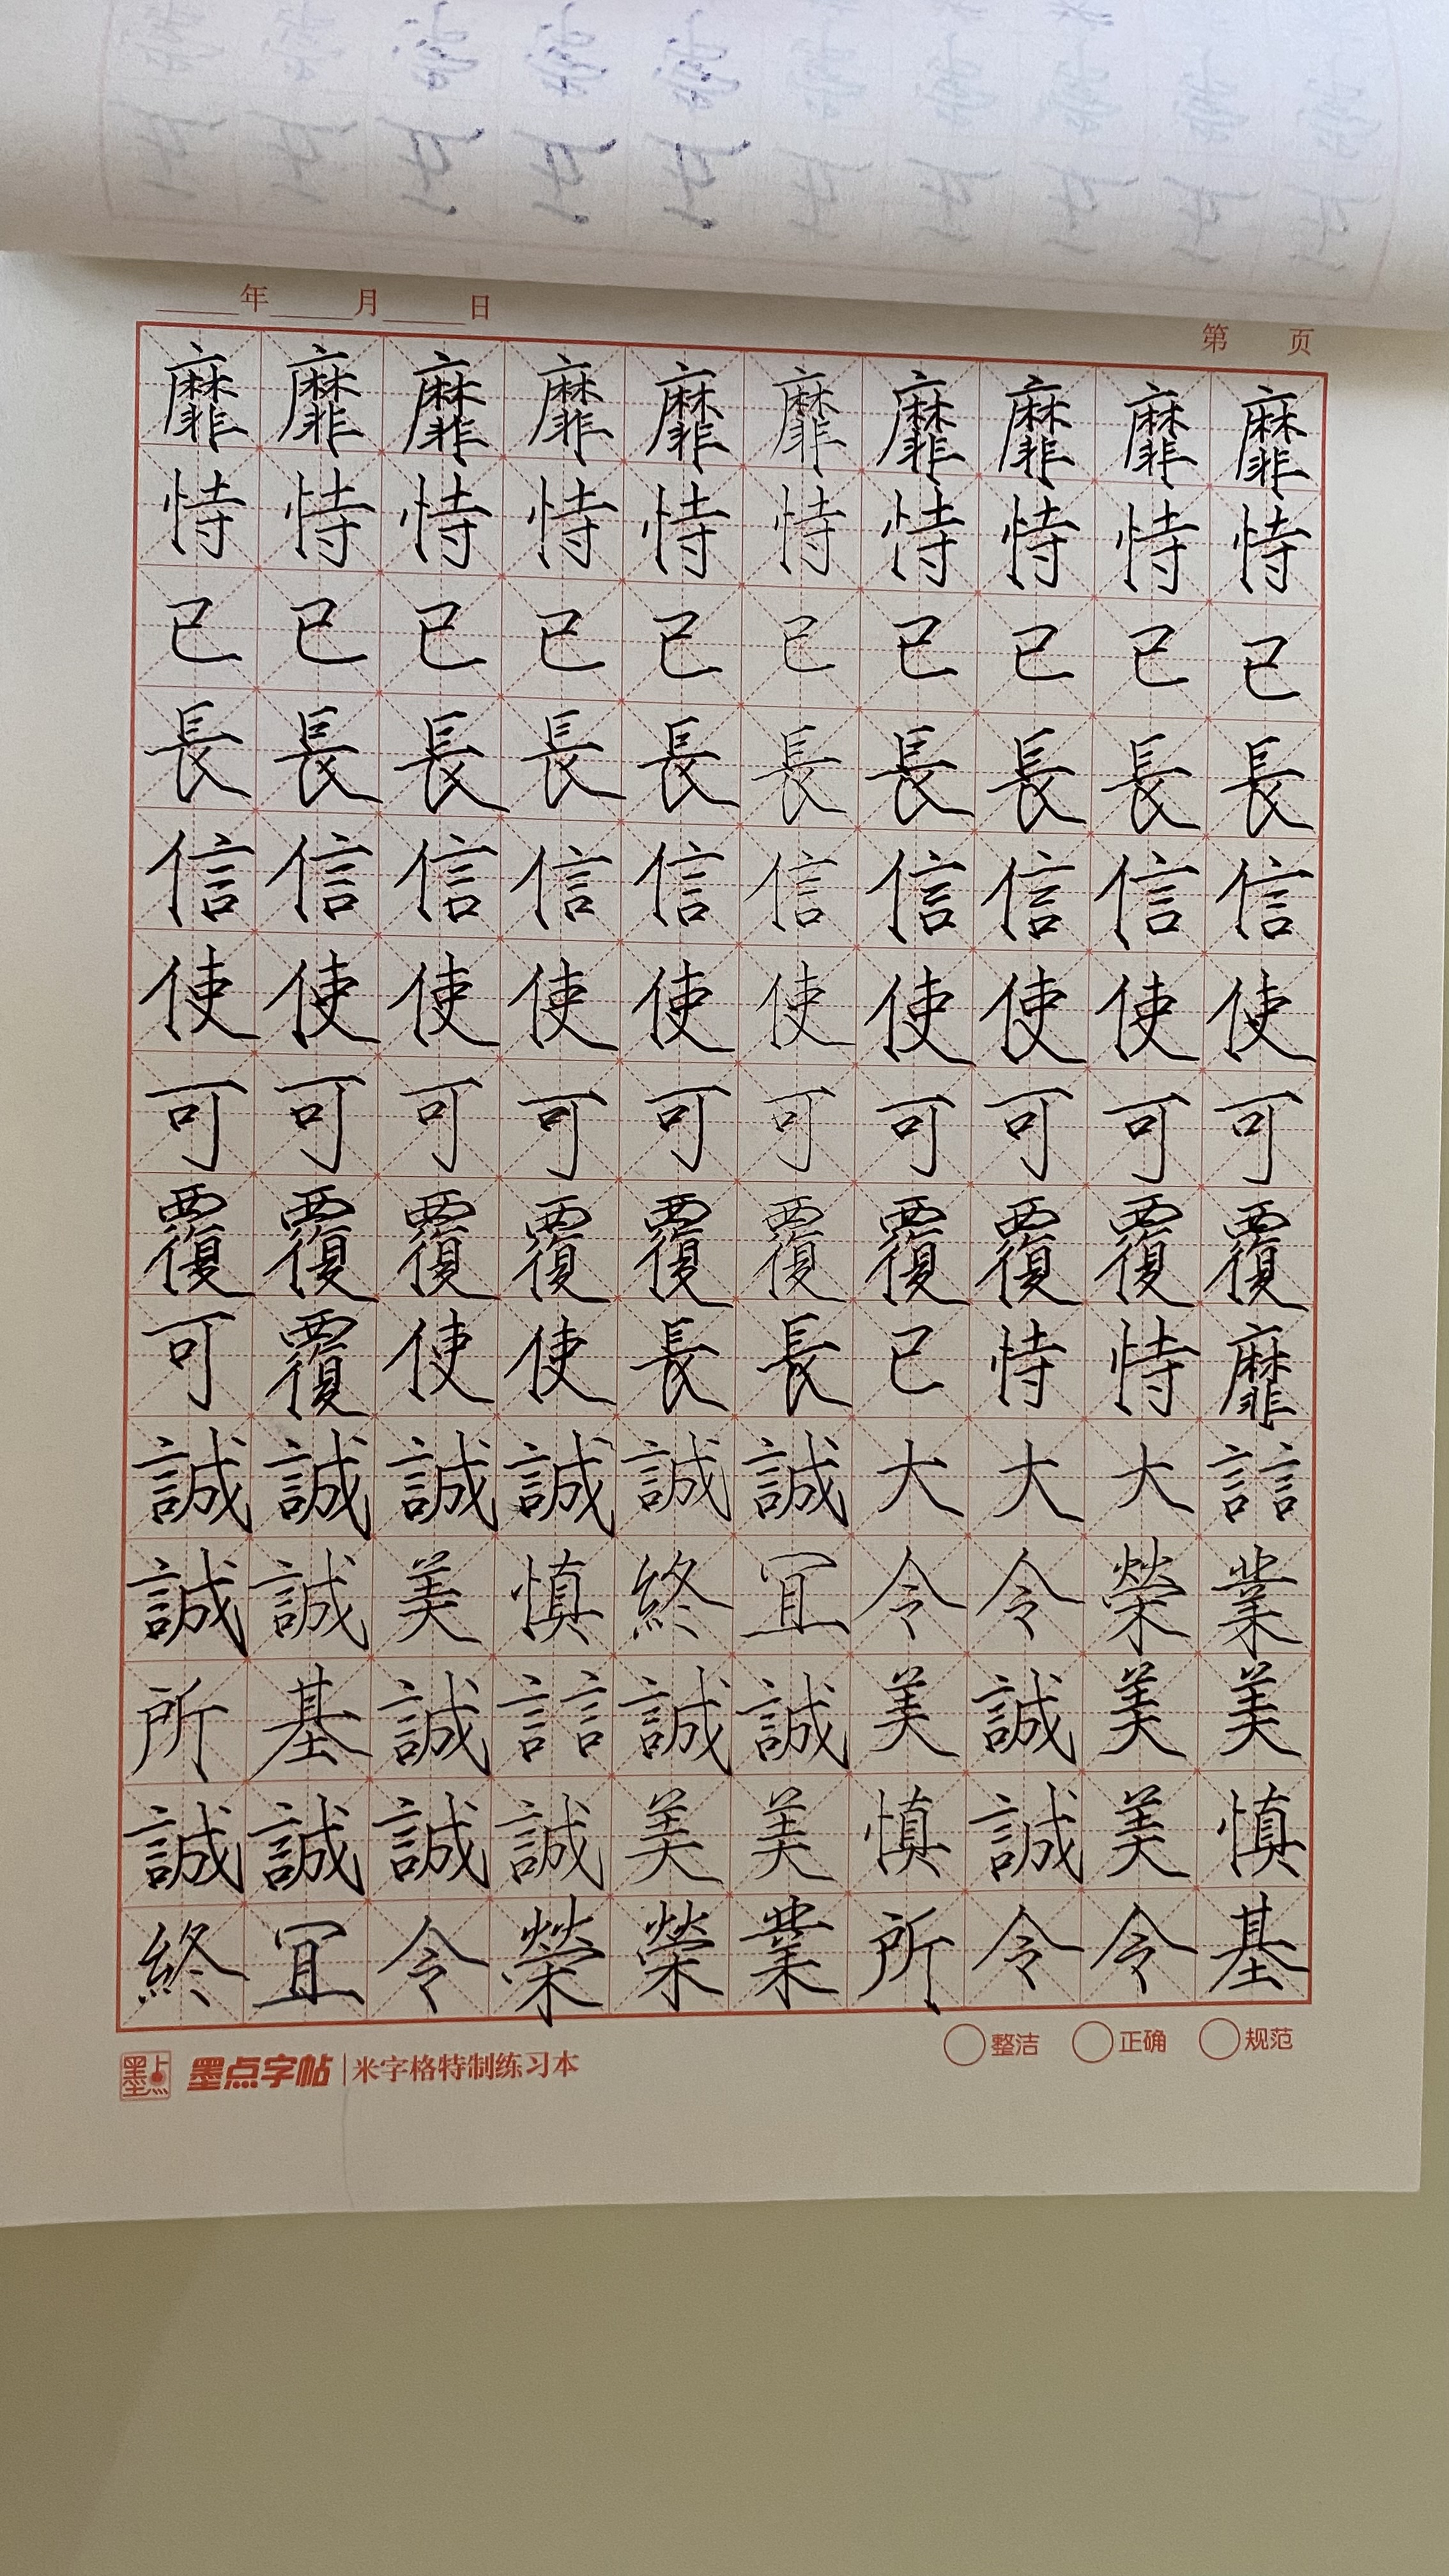 年 月 日
第 页
靡靡靡靡靡靡靡靡靡靡
恃恃恃恃恃恃恃恃恃恃
己己己己己己己己己己
長長長長長長長長長長
信信信信信信信信信信
使使使使使使使使使使
可可可可可可可可可可
覆覆覆覆覆覆覆覆覆覆
可覆使使長長己恃恃靡
誠誠誠誠誠誠大大大言言
誠誠美慎終冝令令榮業
所基誠言言誠誠美誠美美
誠誠誠誠美美慎誠美慎
終冝令榮榮業所令令基
整洁 正确 规范
墨点 墨点字帖 | 米字格特制练习本